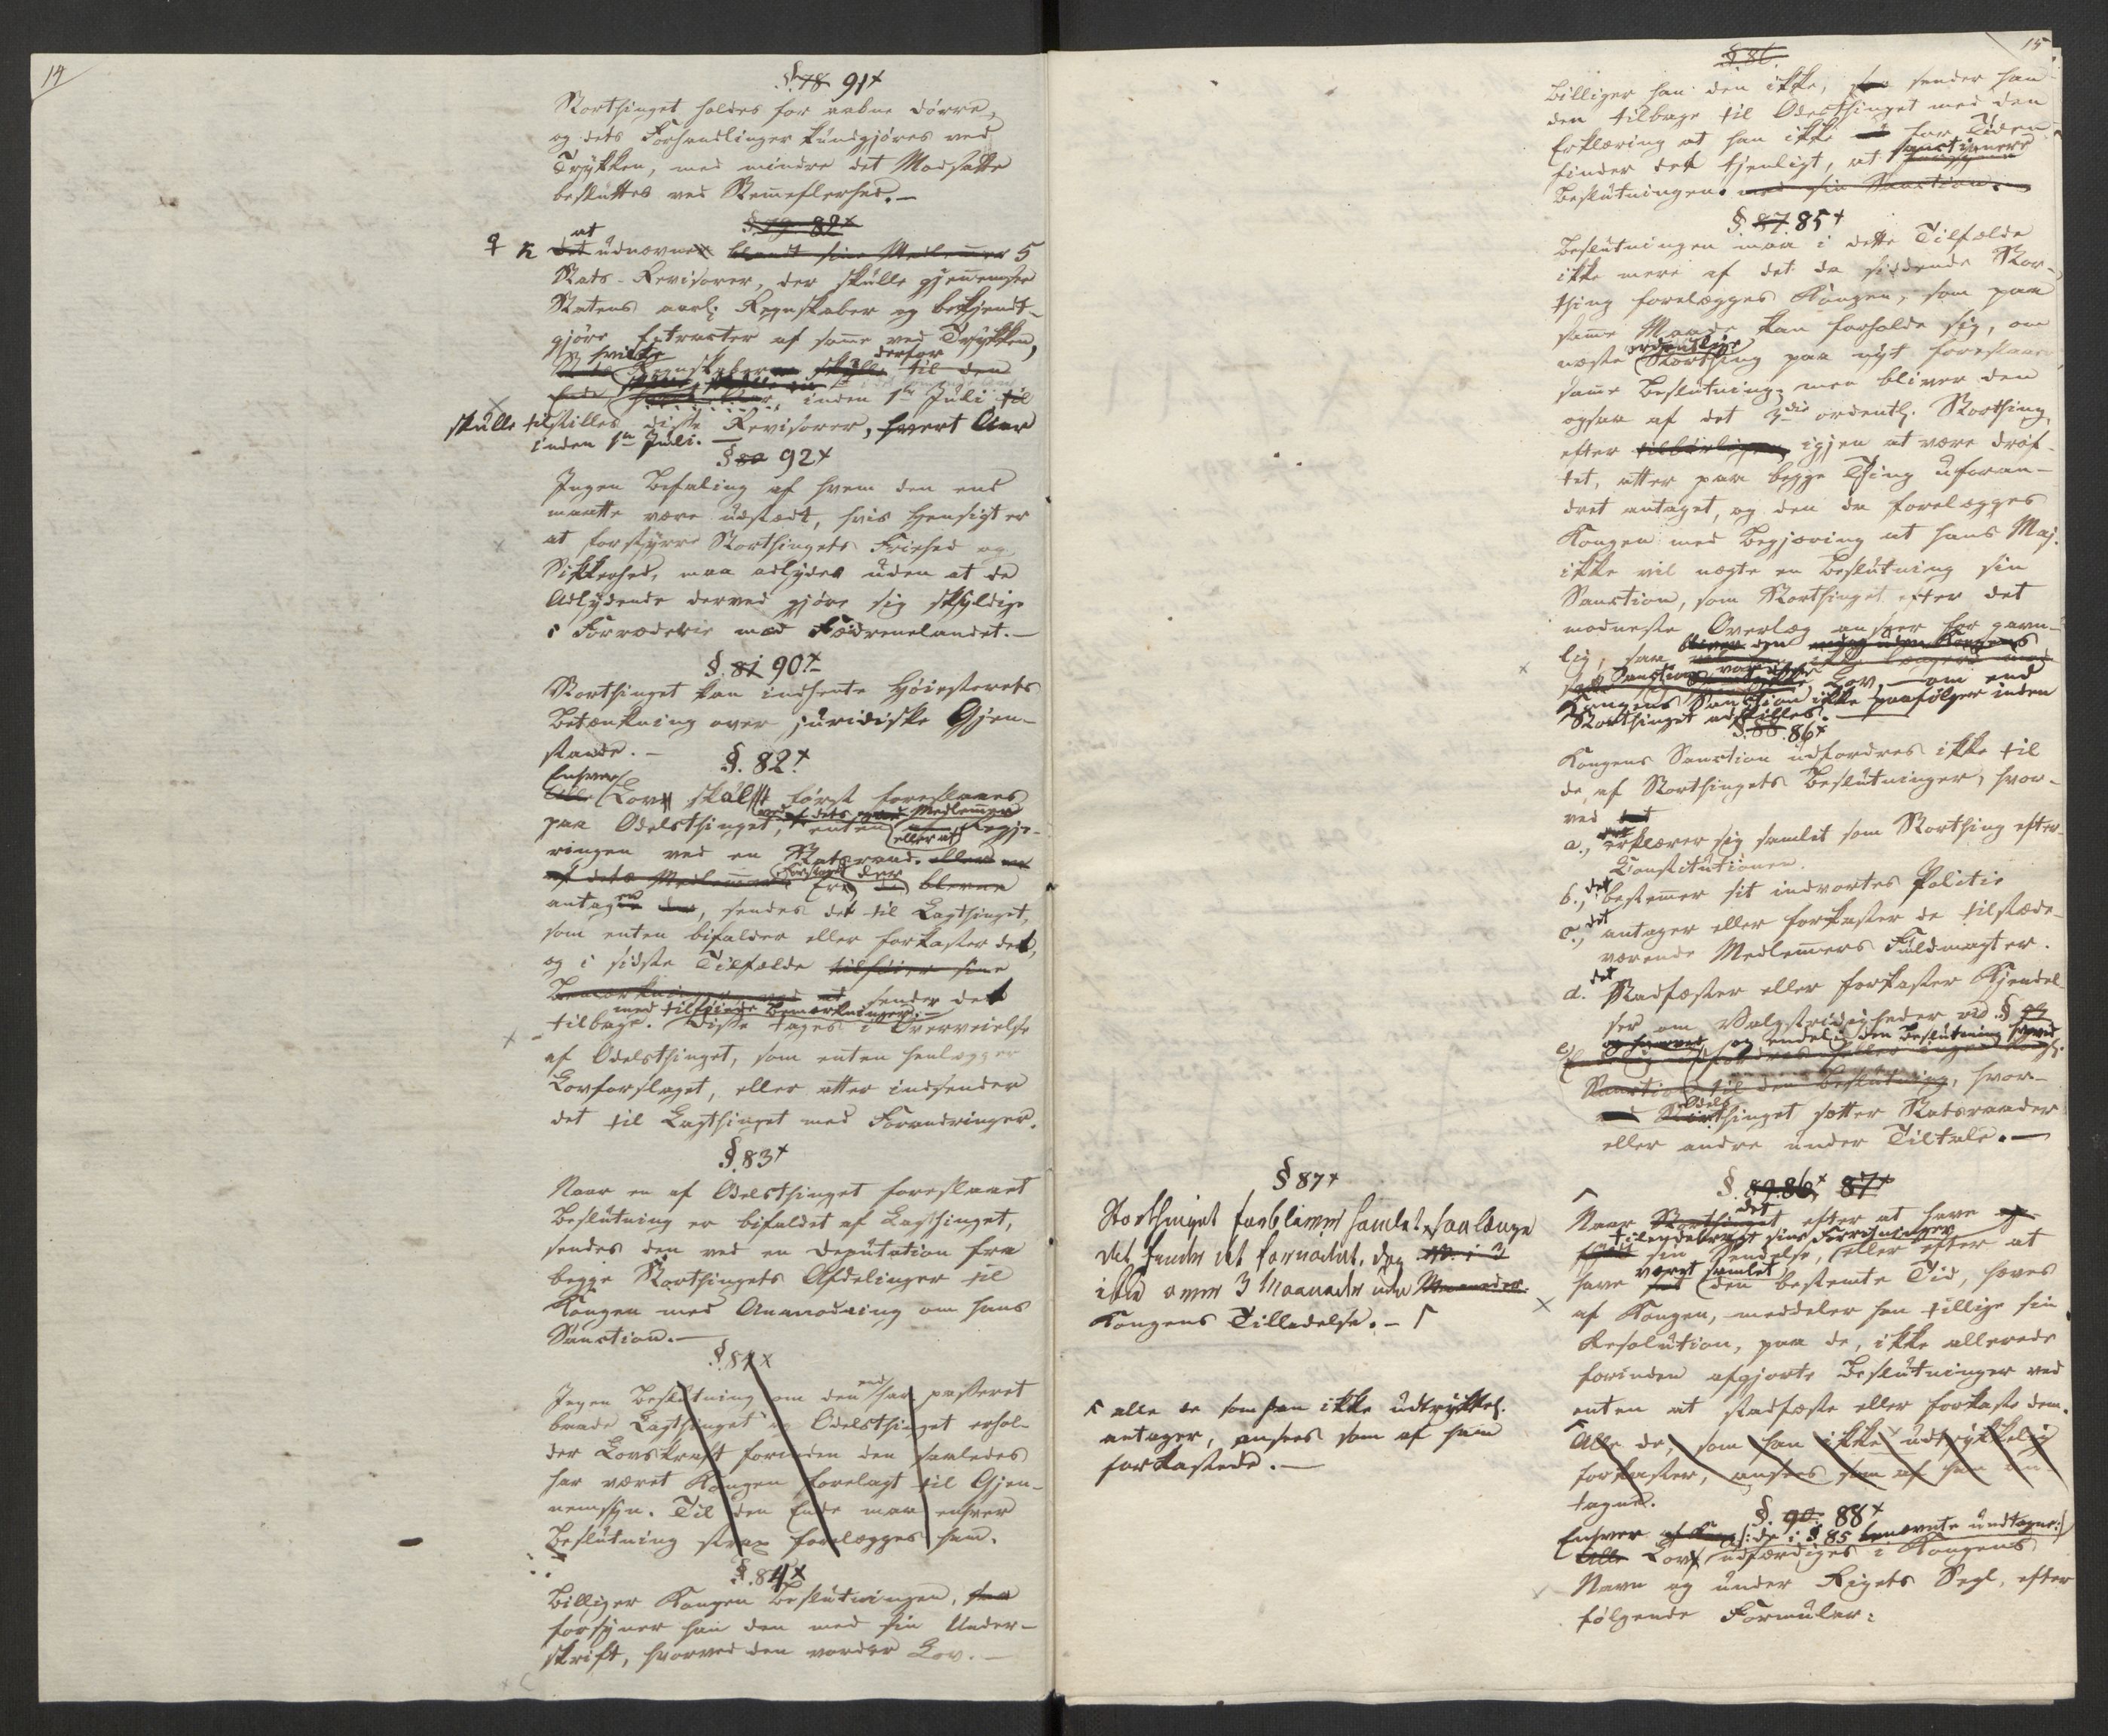 14
§ 78 91 +
Storthinget holdes for aabne Dörre,
og dets Forhandlinger kundgjöres ved
Trykken, med mindre det Modsatte
besluttes ved Stemmeflerhed. —
§ 79 82 +
at
det udnævner blandt sine Medlemmer 5
Stats-Revisorer, der skulle gjennemsee
Statens aarl. Regnskaber og bekjendt-
gjöre Extracter af samme ved Trykken,
hvilke derfor
Regnskaber skulle til den
Ende inden 1ste Juli til
skulle tilstilles disse Revisorer, hvert Aar
inden 1ste Juli. —
§ 80 92 +
Ingen Befaling af hvem den end
maatte være udstædt, hvis Hensigt er
at forstyrre Storthingets Friehed og
Sikkerhed, maa adlydes uden at de
Adlydende derved gjöre sig skyldige
i Forræderie mod Fædrenelandet. —
§. 81 90 +
Storthinget kan indhente Höiesterets
Betænkning over juridiske Gjen-
stande. —
§. 82 +
Enhver
Alle Lov skal först foreslaaes
ved dets egne Medlemmer
paa Odelsthinget, enten af Regje-
eller af
ringen ved en Statsraad. eller en
Forslaget der
af dets Medlemmer. Er blevne
antaget, sendes det til Lagthinget,
som enten bifalder eller forkaster det,
og i sidste Tilfælde tilföier sine
Bemærkninger ved at sender det
med tilföiede Bemærkninger. —
tilbage. Disse tages i Overveielse
af Odelsthinget, som enten henlægger
Lovforslaget, eller atter indsender
det til Lagthinget med Forandringer.
§. 83 +
Naar en af Odelsthinget foreslaaet
Beslutning er bifaldet af Lagthinget,
sendes den ved en Deputation fra
begge Storthingets Afdelinger til
Kongen med Anmodning om hans
Sanction. —
§. 84 x
Ingen Beslutning om den end har passeret
baade Lagthinget og Odelsthinget erhol-
der Lovskraft forinden den saaledes
har været Kongen forelagt til Gjen-
nemsyn. Til den Ende maa enhver
Beslutning strax forelægges ham.
§. 84 x
Billiger Kongen Beslutningen, saa
forsyner han den med sin Under-
skrift, hvorved den vorder Lov. —
§ 87 +
Storthinget forbliver samlet saalænge
det finder det fornödent, dog
ikke over 3 Maaneder uden Maaneder
Kongens Tilladelse. —
alle de som han ikke udtrykkel.
antager, ansees som af ham
forkastede. —
15
§. 86.
Billiger han den ikke, saa sender han
den tilbage til Odelsthinget med den
Erklæring at han ikke for Tiden
sanctionere
finder det tjenligt, at forsyne
Beslutningen. med sin Sanction. —
§. 87. 85 +
Beslutningen maa i dette Tilfælde
ikke mere af det da siddende Stor-
thing forelægges Kongen, som paa
samme Maade kan forholde sig, om
ordentlige
næste Storthing paa nyt foreslaaer
samme Beslutning; men bliver den
ogsaa af det 3die ordentl. Storthing,
efter igjen at være dröf-
tet, atter paa begge Thing uforan-
dret antaget, og den da forelægges
Kongen med Begjæring at hans Maj.
ikke vil nægte en Beslutning sin
Sanction, som Storthinget efter det
modneste Overlæg anseer for gavn-
bliver den uden Kongens
lig, saa ikke længere
Sanction vorder Lov, — om end
Kongens Sanction ikke paafölger inden
Storthinget adskilles. —
§. 88. 86 +
Kongens Sanction udfordres ikke til
de, af Storthingets Beslutninger, hvor-
ved
det
a., erklærer sig samlet som Storthing efter
Constitutionen.
det
b., bestemmer sit indvortes Politie
det
c., antager eller forkaster de tilstæde-
værende Medlemmers Fuldmagter.
det
d. Stadfæster eller forkaster Kjendel-
ser om Valgstridigheder ved §
og endelig den Beslutning hvorved
e.,
Sanction til den Beslutning, hvor-
Odels
Storthinget sætter Statsraader
eller andre under Tiltale. —
§. 89. 86 + 87 +
det
Naar Storthinget efter at have
tilendebragt sine Forretninger
sin Sendelse, eller efter at
været samlet
have den bestemte Tid, hæves
af Kongen, meddeler han tillige sin
Resolution, paa de, ikke allerede
forinden afgjorte Beslutninger ved
enten at stadfæste eller forkaste dem.
Alle de, som han ikke udtrykkelig
forkaster, ansees som af ham an-
tagne.
§. 90. 88 +
Enhver (: de i § 85 benævnte undtagne :)
Alle Lov udfærdiges i Kongens
Navn og under Rigets Segl, efter
fölgende Formular: